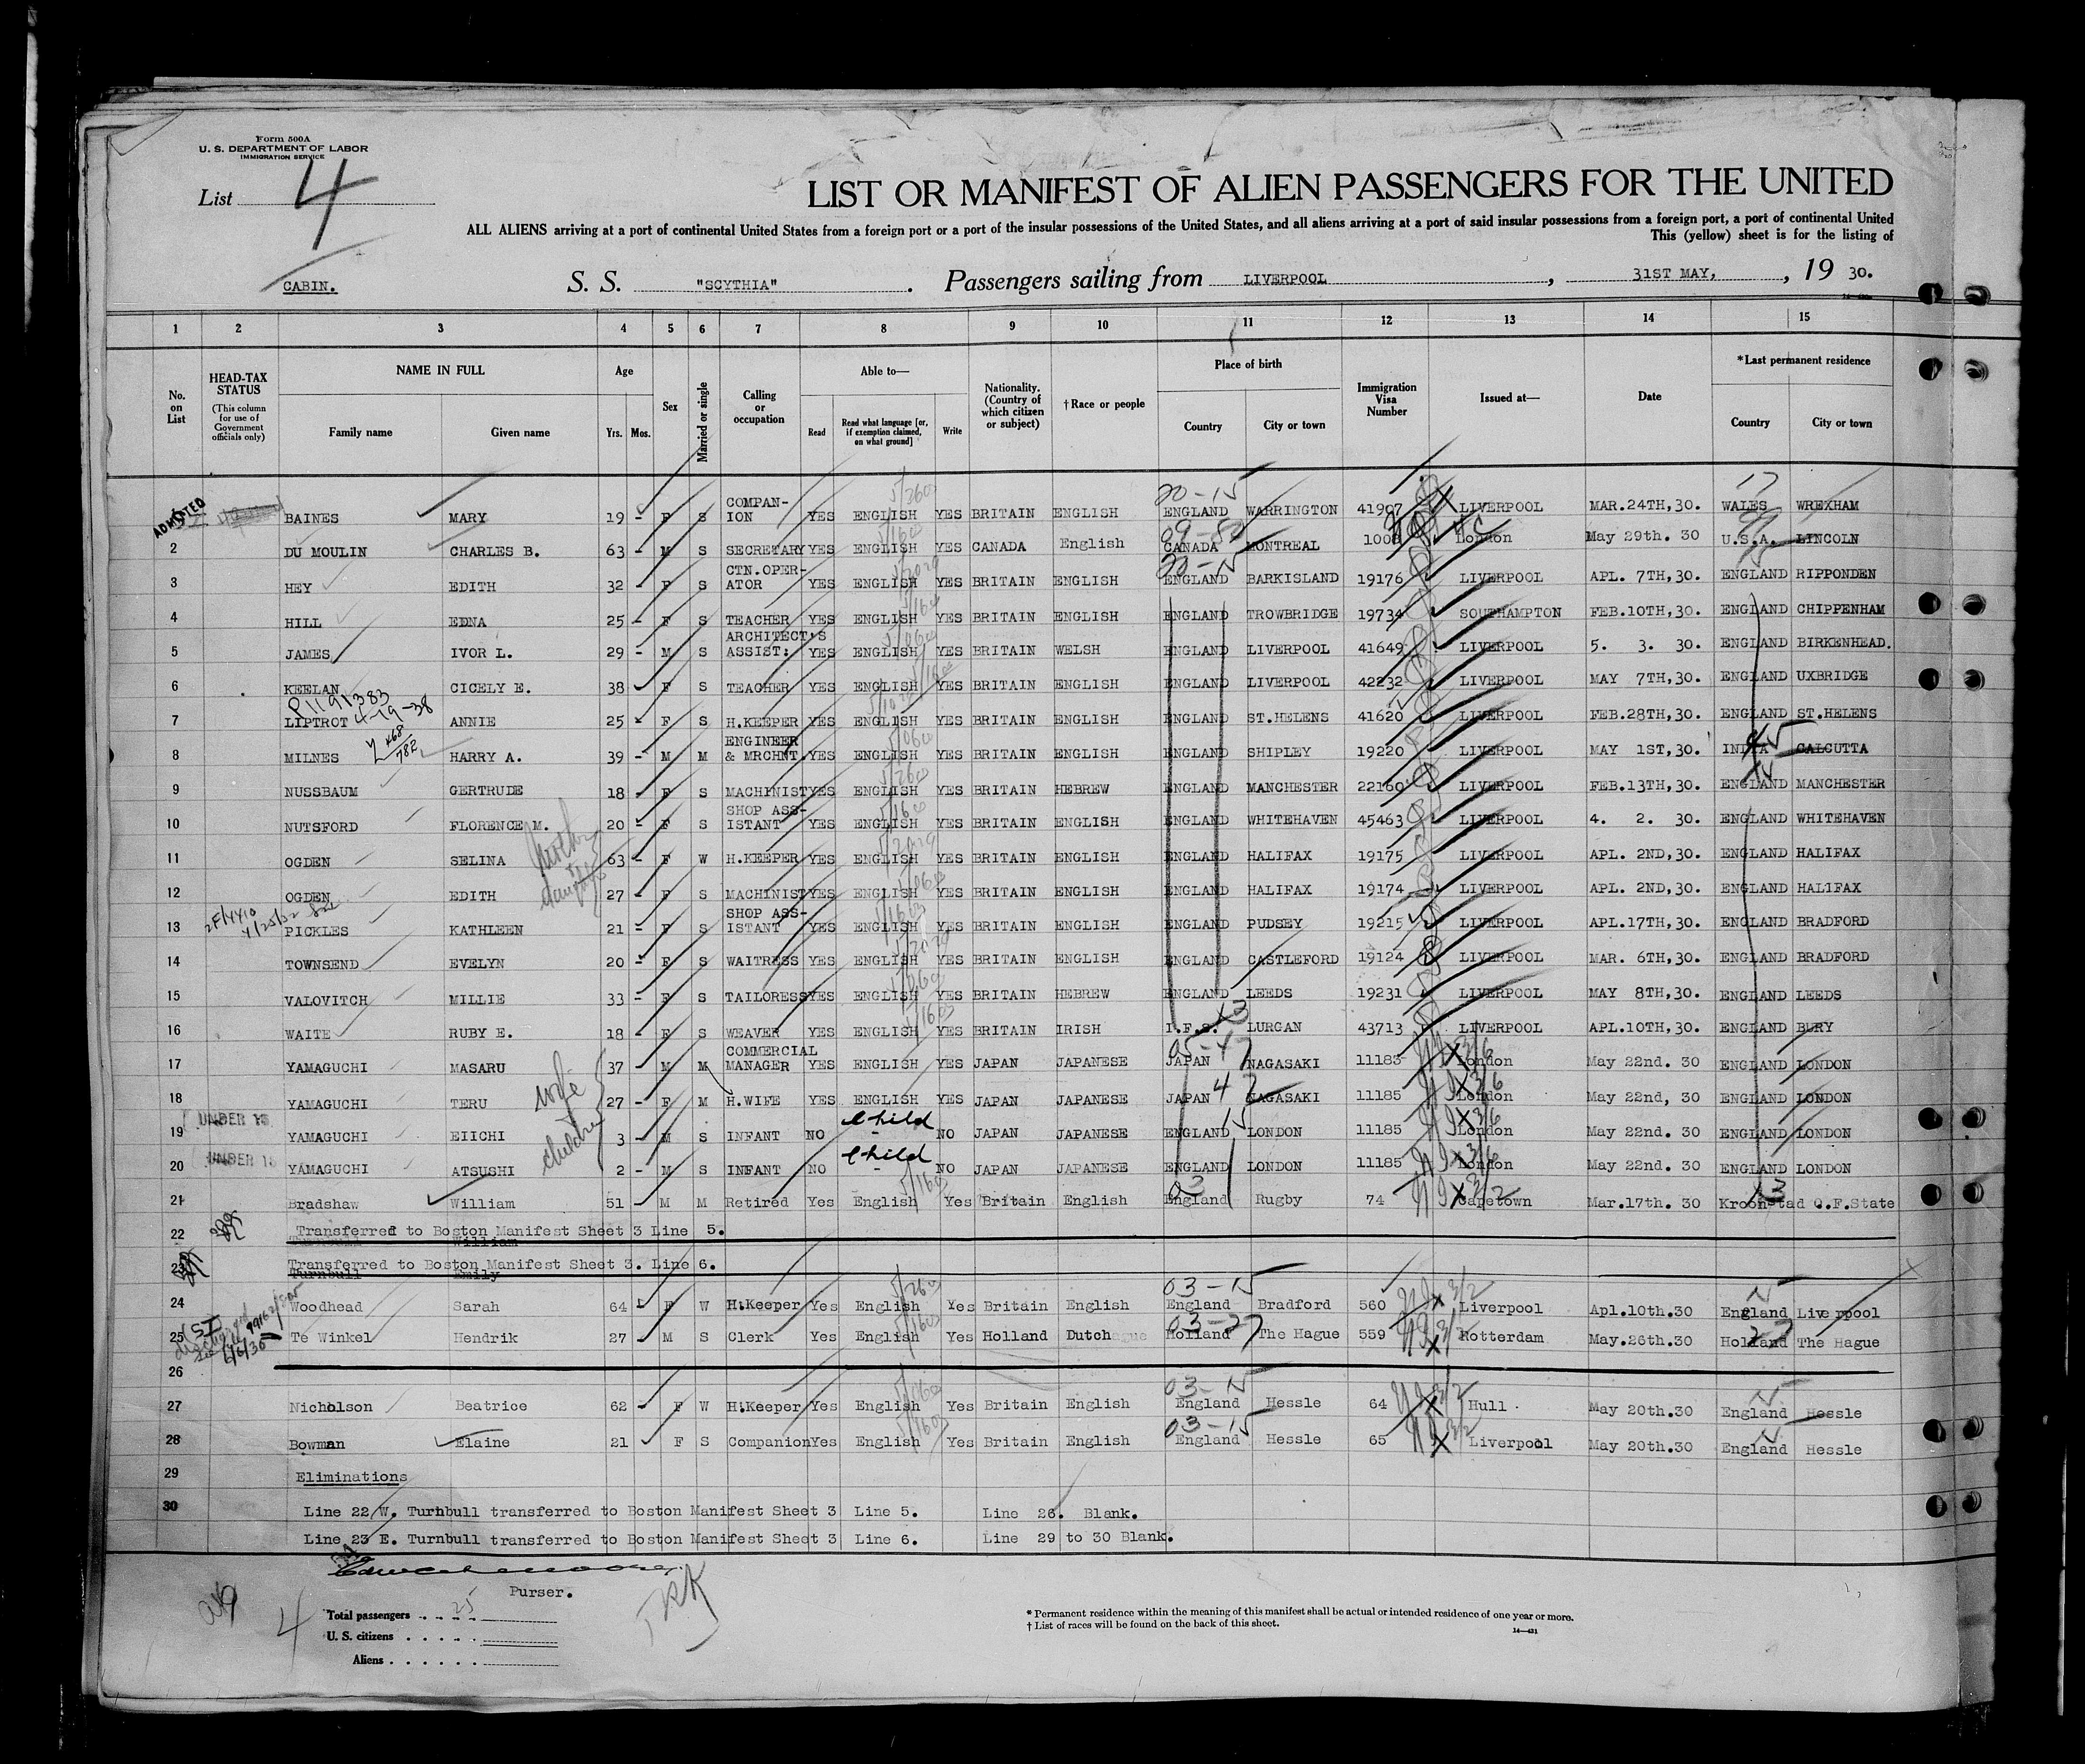 Form 500A
U. S. DEPARTMENT OF LABOR
IMMIGRATION SERVICE
List 4
LIST OR MANIFEST OF ALIEN PASSENGERS FOR THE UNITED
ALL ALIENS arriving at a port of continental United States from a foreign port or a port of the insular possessions of the United States, and all aliens arriving at a port of said insular possessions from a foreign port, a port of continental United
This (yellow) sheet is for the listing of
CABIN. S. S. "SCYTHIA". Passengers sailing from LIVERPOOL, 31ST MAY, , 19 30.
1 2 3 4 5 6 7 8 9 10 11 12 13 14 15
No. on List HEAD-TAX STATUS (This column for use of Government officials only) NAME IN FULL Family name Given name Age Yrs. Mos. Sex Married or single Calling or occupation Able to— Read Read what language [or, if exemption claimed, on what ground] Write Nationality. (Country of which citizen or subject) † Race or people Place of birth Country City or town Immigration Visa Number Issued at— Date *Last permanent residence Country City or town
ADMITTED BAINES MARY 19 - F S COMPAN-ION YES ENGLISH YES BRITAIN ENGLISH ENGLAND WARRINGTON 41907 LIVERPOOL MAR.24TH,30. WALES WREXHAM
2 DU MOULIN CHARLES B. 63 - M S SECRETARY YES ENGLISH YES CANADA English CANADA MONTREAL 1008 London May 29th. 30 U.S.A. LINCOLN
3 HEY EDITH 32 - F S CTN.OPER-ATOR YES ENGLISH YES BRITAIN ENGLISH ENGLAND BARKISLAND 19176 LIVERPOOL APL. 7TH,30. ENGLAND RIPPONDEN
4 HILL EDNA 25 - F S TEACHER YES ENGLISH YES BRITAIN ENGLISH ENGLAND TROWBRIDGE 19734 SOUTHAMPTON FEB.10TH,30. ENGLAND CHIPPENHAM
5 JAMES IVOR L. 29 - M S ARCHITECT'S ASSIST: YES ENGLISH YES BRITAIN WELSH ENGLAND LIVERPOOL 41649 LIVERPOOL 5. 3. 30. ENGLAND BIRKENHEAD.
6 KEELAN CICELY E. 38 F S TEACHER YES ENGLISH YES BRITAIN ENGLISH ENGLAND LIVERPOOL 42232 LIVERPOOL MAY 7TH,30. ENGLAND UXBRIDGE
P1191383
4-19-38
7 LIPTROT ANNIE 25 - F S H.KEEPER YES ENGLISH YES BRITAIN ENGLISH ENGLAND ST.HELENS 41620 LIVERPOOL FEB.28TH,30. ENGLAND ST.HELENS
8 MILNES HARRY A. 39 - M M ENGINEER & MRCHNT. YES ENGLISH YES BRITAIN ENGLISH ENGLAND SHIPLEY 19220 LIVERPOOL MAY 1ST,30. INDIA CALCUTTA
9 NUSSBAUM GERTRUDE 18 - F S MACHINIST YES ENGLISH YES BRITAIN HEBREW ENGLAND MANCHESTER 22160 LIVERPOOL FEB.13TH,30. ENGLAND MANCHESTER
10 NUTSFORD FLORENCE M. 20 - F S SHOP ASS-ISTANT YES ENGLISH YES BRITAIN ENGLISH ENGLAND WHITEHAVEN 45463 LIVERPOOL 4. 2. 30. ENGLAND WHITEHAVEN
Mother
11 OGDEN SELINA 63 - F W H.KEEPER YES ENGLISH YES BRITAIN ENGLISH ENGLAND HALIFAX 19175 LIVERPOOL APL. 2ND,30. ENGLAND HALIFAX
daughter
12 OGDEN EDITH 27 - F S MACHINIST YES ENGLISH YES BRITAIN ENGLISH ENGLAND HALIFAX 19174 LIVERPOOL APL. 2ND,30. ENGLAND HALIFAX
13 PICKLES KATHLEEN 21 - F S SHOP ASS-ISTANT YES ENGLISH YES BRITAIN ENGLISH ENGLAND PUDSEY 19215 LIVERPOOL APL.17TH,30. ENGLAND BRADFORD
14 TOWNSEND EVELYN 20 - F S WAITRESS YES ENGLISH YES BRITAIN ENGLISH ENGLAND CASTLEFORD 19124 LIVERPOOL MAR. 6TH,30. ENGLAND BRADFORD
15 VALOVITCH MILLIE 33 - F S TAILORESS YES ENGLISH YES BRITAIN HEBREW ENGLAND LEEDS 19231 LIVERPOOL MAY 8TH,30. ENGLAND LEEDS
16 WAITE RUBY E. 18 - F S WEAVER YES ENGLISH YES BRITAIN IRISH I.F.S. LURGAN 43713 LIVERPOOL APL.10TH,30. ENGLAND BURY
17 YAMAGUCHI MASARU 37 M M COMMERCIAL MANAGER YES ENGLISH YES JAPAN JAPANESE JAPAN NAGASAKI 11185 London May 22nd. 30 ENGLAND LONDON
18 YAMAGUCHI TERU wife 27 - F M H.WIFE YES ENGLISH YES JAPAN JAPANESE JAPAN NAGASAKI 11185 London May 22nd, 30 ENGLAND LONDON
UNDER 16
19 YAMAGUCHI EIICHI children 3 - M S INFANT NO Child NO JAPAN JAPANESE ENGLAND LONDON 11185 London May 22nd. 30 ENGLAND LONDON
UNDER 16
20 YAMAGUCHI ATSUSHI 2 - M S INFANT NO Child - NO JAPAN JAPANESE ENGLAND LONDON 11185 London May 22nd. 30 ENGLAND LONDON
21 Bradshaw William 51 M M Retired Yes English Yes Britain English England Rugby 74 Capetown Mar.17th. 30 Kroonstad O.F.State
22 Transferred to Boston Manifest Sheet 3 Line 5.
Turnbull William
23 Transferred to Boston Manifest Sheet 3. Line 6.
Turnbull Emily
24 Woodhead Sarah 64 F W H.Keeper Yes English Yes Britain English England Bradford 560 Liverpool Apl.10th.30 England Liverpool
25 Te Winkel Hendrik 27 M S Clerk Yes English Yes Holland Dutch Holland The Hague 559 Rotterdam May.26th.30 Holland The Hague
26
27 Nicholson Beatrice 62 - F W H.Keeper Yes English Yes Britain English England Hessle 64 Hull. May 20th.30 England Hessle
28 Bowman Elaine 21 F S Companion Yes English Yes Britain English England Hessle 65 Liverpool May 20th.30 England Hessle
29 Eliminations
30 Line 22 W. Turnbull transferred to Boston Manifest Sheet 3 Line 5. Line 26. Blank.
Line 23 E. Turnbull transferred to Boston Manifest Sheet 3 Line 6. Line 29 to 30 Blank.
Purser.
Total passengers 25
U. S. citizens
Aliens
4
* Permanent residence within the meaning of this manifest shall be actual or intended residence of one year or more.
† List of races will be found on the back of this sheet.
14—421